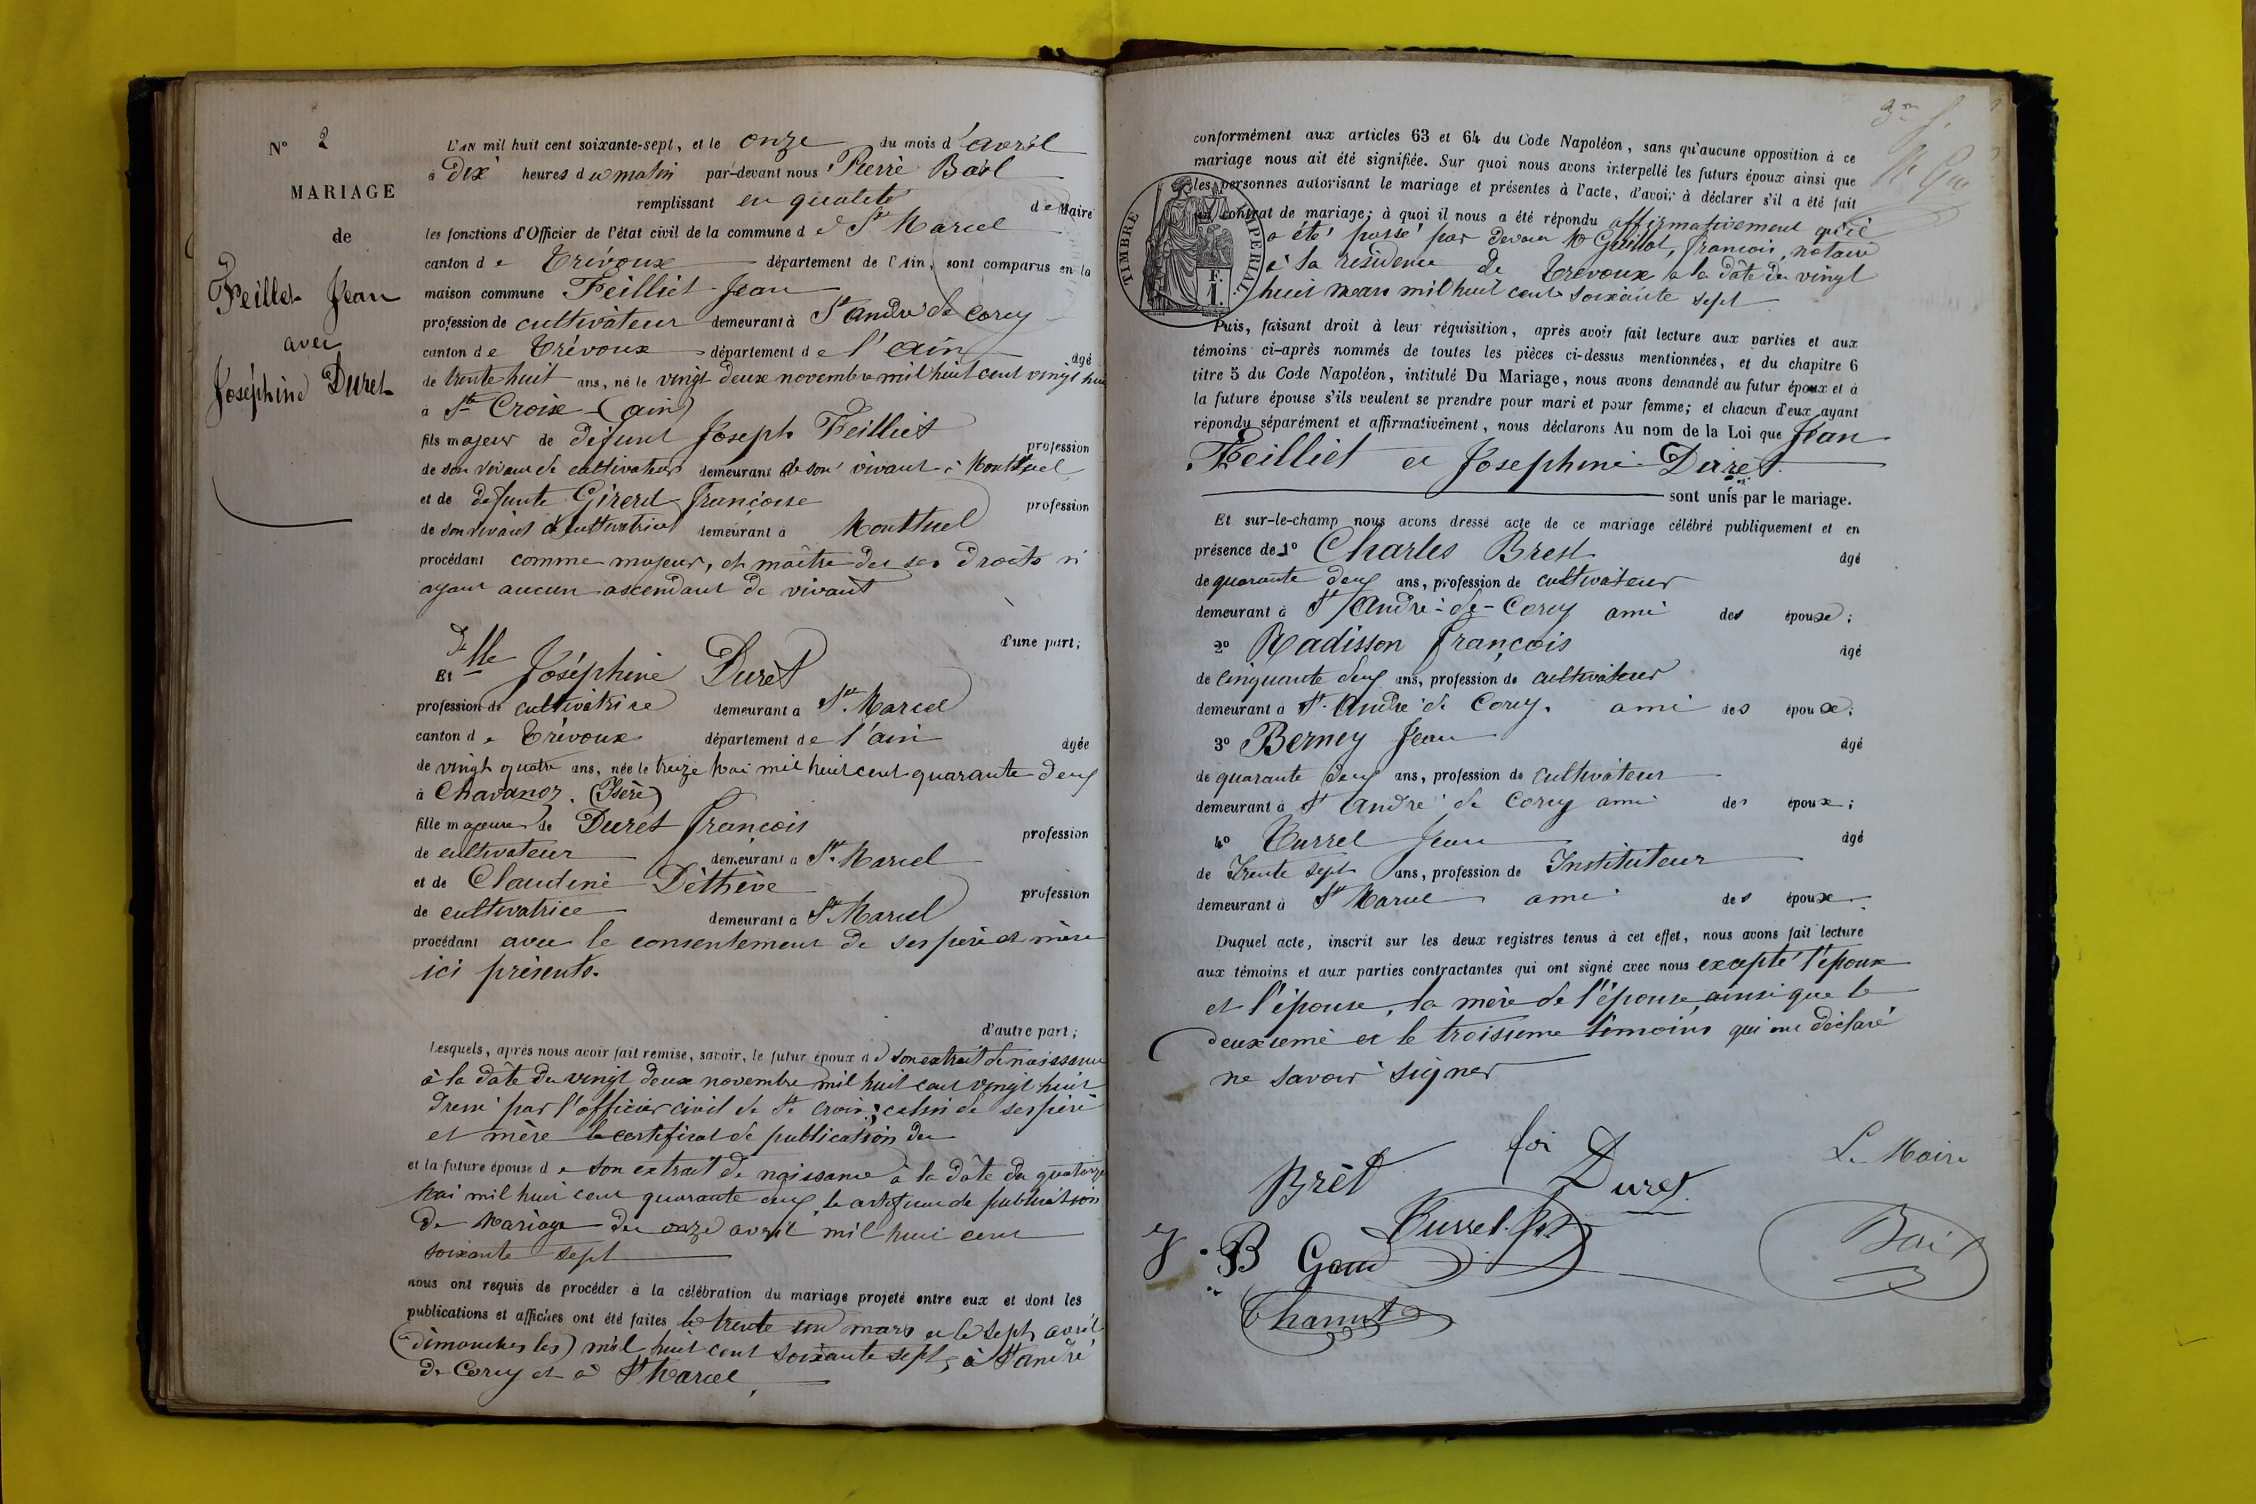 N° 2
MARIAGE
de
Feillet Jean
avec
Joséphine Duret
L'AN mil huit cent soixante-sept, et le onze du mois d'avril
à dix heures du matin par-devant nous Pierre Bail
remplissant en qualité de Maire
les fonctions d'Officier de l'état civil de la commune de St Marcel
canton de Trévoux département de l'Ain, sont comparus en la
maison commune Feilliet Jean
profession de cultivateur demeurant à St André de Corcy
canton de Trévoux département de l'ain âgé
de trente huit ans, né le vingt deux novembre mil huit cent vingt huit
à Ste Croix (ain)
fils majeur de défunt Joseph Feilliet profession
de son vivant de cultivateur demeurant de son vivant à Montluel
et de defunte Girerd Françoise profession
de son vivant de cultivatrice demeurant à Montluel
procédant comme majeur, et maître de ses droits n'
ayant aucun ascendant de vivant
d'une part;
Et Dlle Joséphine Duret
profession de cultivatrice demeurant à St Marcel
canton de Trévoux département de l'ain âgée
de vingt quatre ans, née le treize Mai mil huit cent quarante deux
à Chavanoz. (Isère)
fille majeure de Duret François profession
de cultivateur demeurant à St Marcel
et de Claudine Déthève profession
de cultivatrice demeurant à St Marcel
procédant avec le consentement de ses père et mère
ici présents.
d'autre part;
Lesquels, après nous avoir fait remise, savoir, le futur époux de son extrait de naissance
à la dâte du vingt deux novembre mil huit cent vingt huit
dressé par l'officier civil de Ste Croix; celui de ses père
et mère le certificat de publication du
et la future épouse de son extrait de naissance à la dâte du quatorze
Mai mil huit cent quarante deux, le certificat de publication
de Mariage du onze avril mil huit cent
soixante sept
nous ont requis de procéder à la célébration du mariage projeté entre eux et dont les
publications et affiches ont été faites le trente un mars et le sept avril
(dimanches les) mil huit cent soixante sept, à St André
de Corcy et à St Marcel,
conformément aux articles 63 et 64 du Code Napoléon, sans qu'aucune opposition à ce
mariage nous ait été signifiée. Sur quoi nous avons interpellé les futurs époux ainsi que
les personnes autorisant le mariage et présentes à l'acte, d'avoir à déclarer s'il a été fait
un contrat de mariage; à quoi il nous a été répondu affirmativement qu'il
a été passé par devant Me Guillot, François, notaire
à la résidence de Trévoux à la dâte du vingt
huit mars mil huit cent soixante sept
TIMBRE IMPERIAL
Puis, faisant droit à leur réquisition, après avoir fait lecture aux parties et aux
témoins ci-après nommés de toutes les pièces ci-dessus mentionnées, et du chapitre 6
titre 5 du Code Napoléon, intitulé Du Mariage, nous avons demandé au futur époux et à
la future épouse s'ils veulent se prendre pour mari et pour femme; et chacun d'eux ayant
répondu séparément et affirmativement, nous déclarons Au nom de la Loi que Jean
Feilliet et Josephine Duret
sont unis par le mariage.
Et sur-le-champ nous avons dressé acte de ce mariage célébré publiquement et en
présence de 1° Charles Brest âgé
de quarante deux ans, profession de cultivateur
demeurant à St André-de-Corcy ami des époux;
2° Radisson François âgé
de cinquante deux ans, profession de cultivateur
demeurant à St André de Corcy. ami des époux;
3° Berney Jean âgé
de quarante deux ans, profession de cultivateur
demeurant à St André de Corcy ami des époux;
4° Turrel Jean âgé
de Trente sept ans, profession de Instituteur
demeurant à St Marcel ami des époux.
Duquel acte, inscrit sur les deux registres tenus à cet effet, nous avons fait lecture
aux témoins et aux parties contractantes qui ont signé avec nous excepté l'époux
et l'épouse, la mère de l'épouse, ainsi que le
deuxième et le troisième témoins qui ont déclaré
ne savoir signer
Brèt Duret Le Maire
Turrel
Chanut
Bail